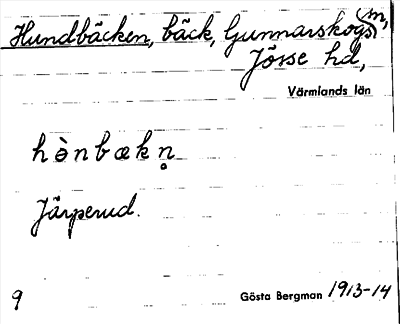 Hundbäcken, bäck, Gunnarskogs sn,
Jösse hd,
Värmlands län
hὸnbækn̥
Järperud.
9 Gösta Bergman 1913-14